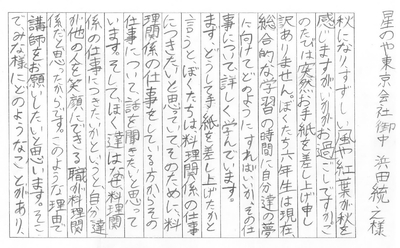 星のや東京会社御中　浜田統之様
秋になりすずしい風や紅葉が秋を
感じますが、いかがお過ごしですか。こ
のたびは突然お手紙を差し上げ申し
訳ありません。ぼくたち六年生は現在
総合的な学習の時間に自分達の夢
に向けてどのようにすればいいか、その仕
事について詳しく学んでいます。
まず、どうして手紙を差し上げたかと
言うと、ぼくたちは料理関係の仕事
につきたいと思っていてそのために、料
理関係の仕事をしている方からその
仕事について、話を聞きたいと思って
います。そして、ぼく達はなぜ料理関
係の仕事につきたいかというと、自分達
が他の人を笑顔にできる職が料理関
係だと思ったからです。このような理由で
講師をお願いしたいと思います。そこ
でみな様にどのようなことがあり、